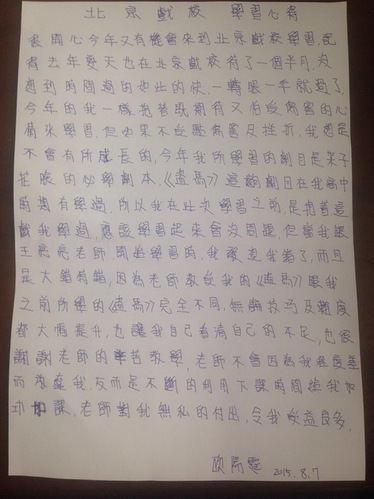 北京戲校 學習心得
很開心今年又有機會來到北京戲校學習,記
得去年夏天也在北京戲校待了一個半月,沒
想到時間過的如此的快,一轉眼一年就過了,
今年的我一樣抱著既期待又怕受傷害的心
情來學習,但如果不經歷傷害及挫折,我想是
不會有所成長的,今年我所學習的劇目是朵子
花旦的必學劇本,《盜馬》這齣劇目在我高中
時期有學過,所以我在此次學習之前是抱著這
戲我學過,應該學起來會沒問題,但當我跟
王老師開始學習時,我發覺我錯了,而且
是大錯特錯,因為老師教給我的《盜馬》跟我
之前所學的《盜馬》完全不同,無論技巧及難度
都大幅提升,也讓我自己看清自己的不足,也很
謝謝老師的辛苦教學,老師不會因為我程度差
而放棄我,反而是不斷的利用下課時間給我加
功加課,老師對我無私的付出,令我收益良多,
2015.8.7